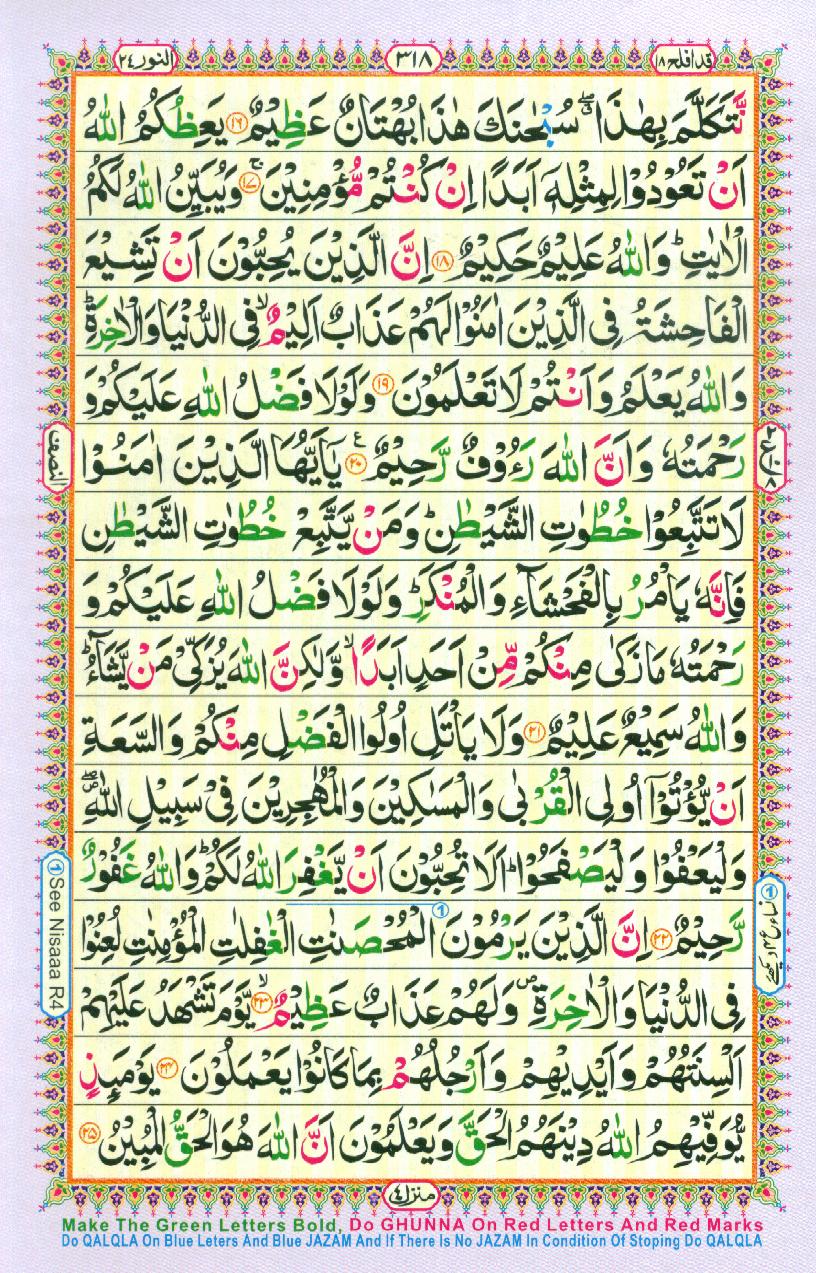 قد افلح ١٨
٣١٨
النور ٢٤
نَّتَكَلَّمَ بِهٰذَا ۖۗ سُبْحٰنَكَ هٰذَا بُهْتَانٌ عَظِيْمٌ ١٦ يَعِظُكُمُ اللّٰهُ
اَنْ تَعُوْدُوْا لِمِثْلِهٖۤ اَبَدًا اِنْ كُنْتُمْ مُّؤْمِنِيْنَ ۚ ١٧ وَيُبَيِّنُ اللّٰهُ لَكُمُ
الْاٰيٰتِ ؕ وَاللّٰهُ عَلِيْمٌ حَكِيْمٌ ١٨ اِنَّ الَّذِيْنَ يُحِبُّوْنَ اَنْ تَشِيْعَ
الْفَاحِشَةُ فِى الَّذِيْنَ اٰمَنُوْا لَهُمْ عَذَابٌ اَلِيْمٌ ۙ فِى الدُّنْيَا وَالْاٰخِرَةِ ؕ
وَاللّٰهُ يَعْلَمُ وَاَنْتُمْ لَا تَعْلَمُوْنَ ١٩ وَلَوْلَا فَضْلُ اللّٰهِ عَلَيْكُمْ وَ
رَحْمَتُهٗ وَاَنَّ اللّٰهَ رَءُوْفٌ رَّحِيْمٌ ٢٠ ع يٰۤاَيُّهَا الَّذِيْنَ اٰمَنُوْا
لَا تَتَّبِعُوْا خُطُوٰتِ الشَّيْطٰنِ ؕ وَمَنْ يَّتَّبِعْ خُطُوٰتِ الشَّيْطٰنِ
فَاِنَّهٗ يَاْمُرُ بِالْفَحْشَآءِ وَالْمُنْكَرِ ؕ وَلَوْلَا فَضْلُ اللّٰهِ عَلَيْكُمْ وَ
رَحْمَتُهٗ مَا زَكٰى مِنْكُمْ مِّنْ اَحَدٍ اَبَدًا ۙ وَّلٰكِنَّ اللّٰهَ يُزَكِّىْ مَنْ يَّشَآءُ ؕ
وَاللّٰهُ سَمِيْعٌ عَلِيْمٌ ٢١ وَلَا يَاْتَلِ اُولُوا الْفَضْلِ مِنْكُمْ وَالسَّعَةِ
اَنْ يُّؤْتُوْۤا اُولِى الْقُرْبٰى وَالْمَسٰكِيْنَ وَالْمُهٰجِرِيْنَ فِىْ سَبِيْلِ اللّٰهِ ۖ
وَلْيَعْفُوْا وَلْيَصْفَحُوْا ؕ اَلَا تُحِبُّوْنَ اَنْ يَّغْفِرَ اللّٰهُ لَكُمْ ؕ وَاللّٰهُ غَفُوْرٌ
رَّحِيْمٌ ٢٢ اِنَّ الَّذِيْنَ يَرْمُوْنَ ① الْمُحْصَنٰتِ الْغٰفِلٰتِ الْمُؤْمِنٰتِ لُعِنُوْا
فِى الدُّنْيَا وَالْاٰخِرَةِ ۪ وَلَهُمْ عَذَابٌ عَظِيْمٌ ۙ ٢٣ يَّوْمَ تَشْهَدُ عَلَيْهِمْ
اَلْسِنَتُهُمْ وَاَيْدِيْهِمْ وَاَرْجُلُهُمْ بِمَا كَانُوْا يَعْمَلُوْنَ ٢٤ يَوْمَئِذٍ
يُّوَفِّيْهِمُ اللّٰهُ دِيْنَهُمُ الْحَقَّ وَيَعْلَمُوْنَ اَنَّ اللّٰهَ هُوَ الْحَقُّ الْمُبِيْنُ ٢٥
النصف
① See Nisaaa R4
منزل ٤
Make The Green Letters Bold, Do GHUNNA On Red Letters And Red Marks
Do QALQLA On Blue Leters And Blue JAZAM And If There Is No JAZAM In Condition Of Stoping Do QALQLA